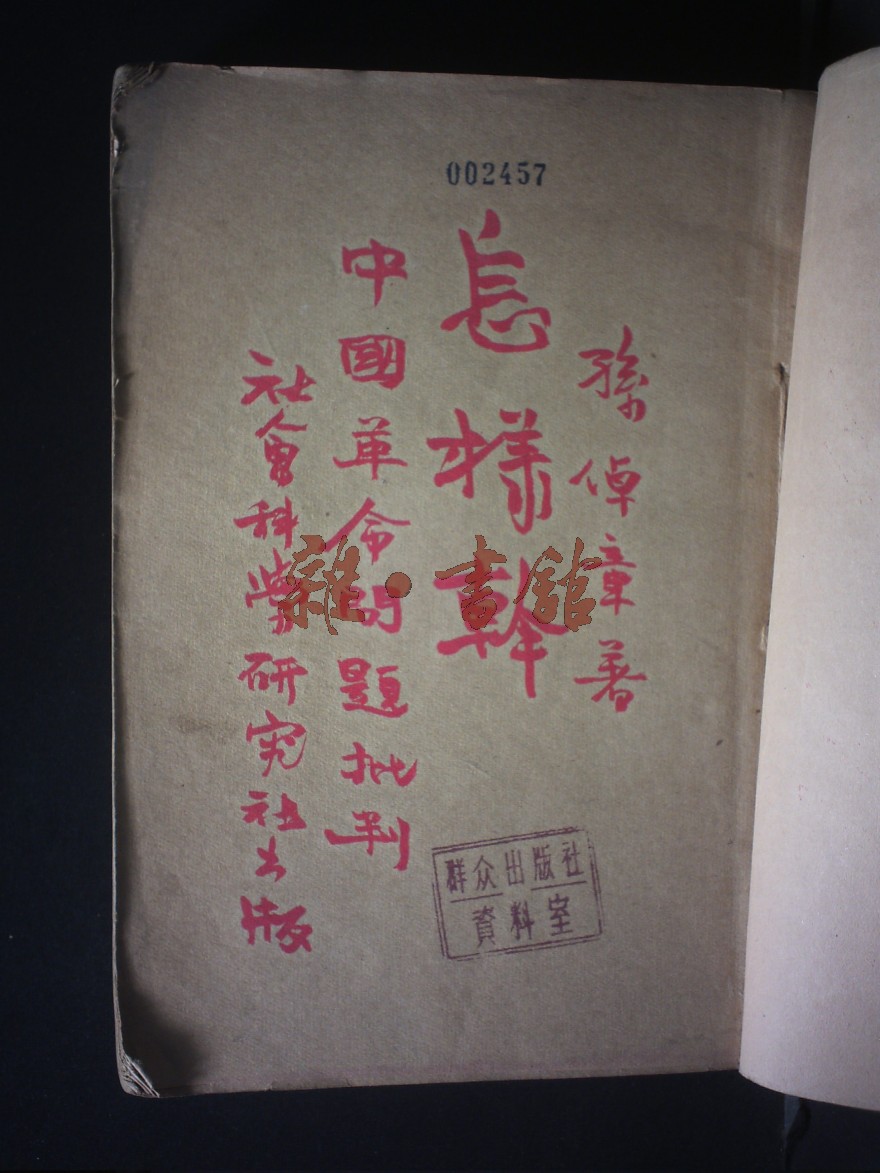 002457
孫倬章著
怎樣幹
中國革命問題批判
社會科學研究社出版
雜·書館
群众出版社
資料室